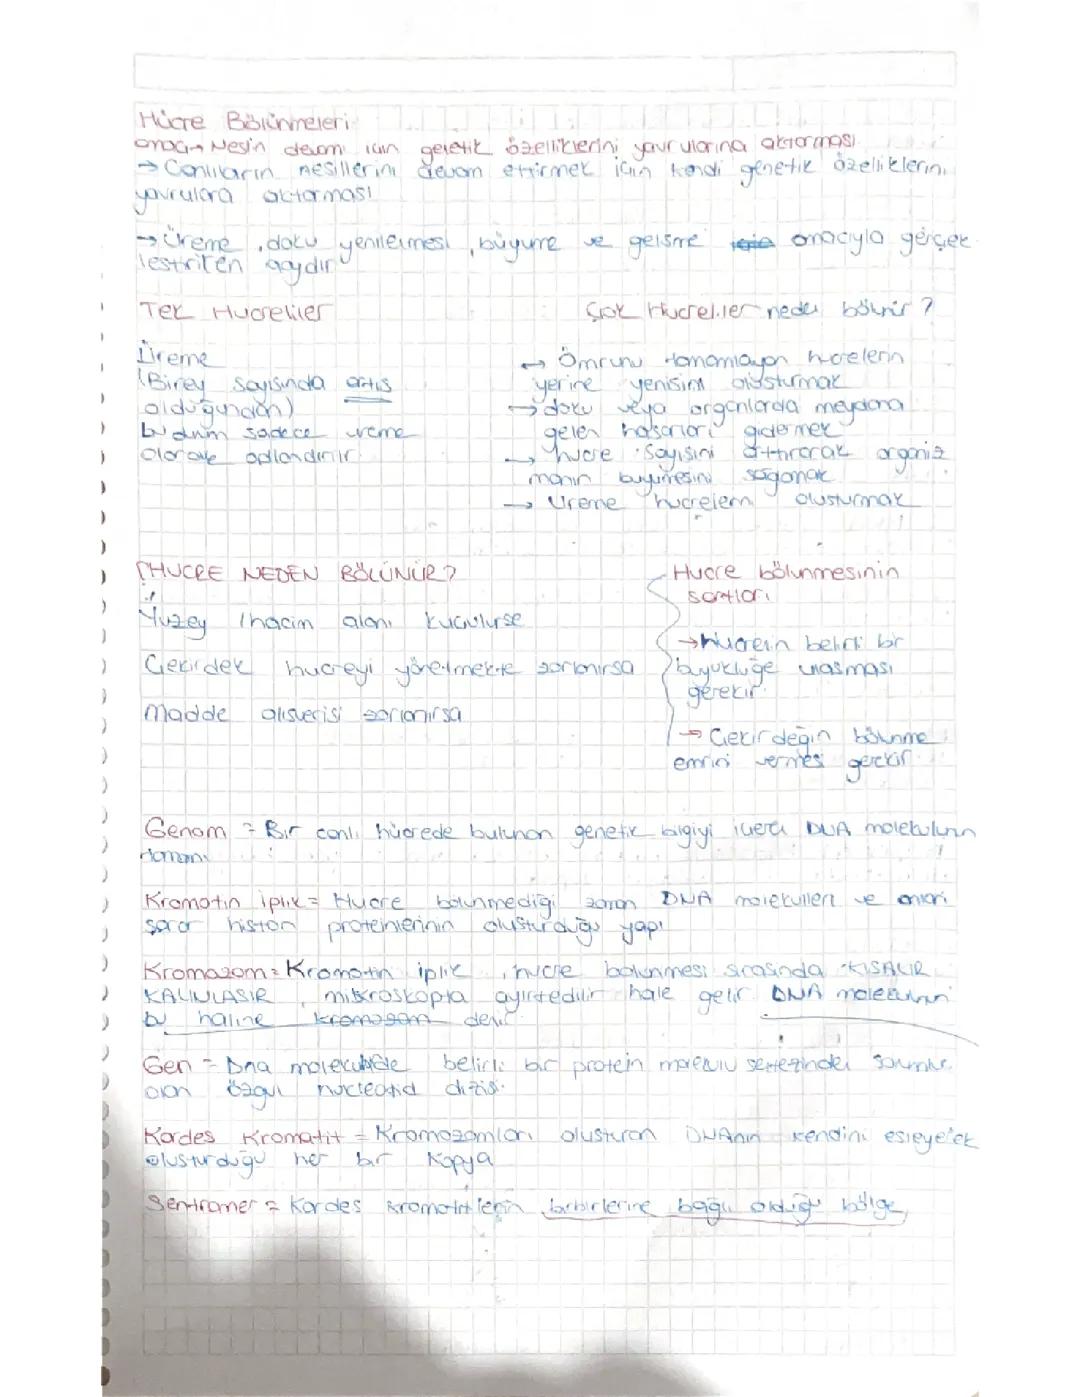 Hücre Bölünmeleri
amaç→ Neslin devamı için genetik özelliklerini yavrularına aktarması.
→ Canlıların nesillerini devam ettirmek için kendi genetik özelliklerini
yavrulara aktarması
→ Üreme, doku yenilenmesi, büyüme ve gelişme amacıyla gerçek
leştirilen olaydır
Tek Hucreliler
Üreme
(Birey sayısında artış
olduğundan)
bu durum sadece üreme
olarak adlandırılır
Çok Hucreliler neden bölünür?
→ Ömrünü tamamlayan hücrelerin
yerine yenisini oluşturmak
→ doku veya organlarda meydana
gelen hasarları gidermek
→ hücre sayısını arttırarak organiz
manın büyümesini sağlamak
→ Üreme hucrelerini oluşturmak
HUCRE NEDEN BÖLÜNÜR?
Yüzey / hacim alanı küçülürse
Çekirdek hucreyi yönetmekte zorlanırsa
Madde alışverişi zorlanırsa
Hucre bölünmesinin
şartları
→ hücrenin belirli bir
büyüklüğe ulaşması
gerekir.
→ Çekirdeğin bölünme
emrini vermesi gerekir
Genom = Bir canlı hücrede bulunan genetik bilgiyi içeren DNA molekülünün
tamamı
Kromatin iplik = Hücre bölünmediği zaman DNA molekülleri ve onları
sarar histon proteinlerinin oluşturduğu yapı
Kromozom = Kromatin iplik, hücre bölünmesi sırasında KISALIR
KALINLAŞIR, mikroskopla ayırtedilir hale gelir DNA molekülünün
bu haline kromozom denir
Gen = Dna molekülünde belirli bir protein molekülü sentezinden sorumlu
olan özgül nükleotid dizisi.
Kardeş Kromatit = Kromozomları oluşturan DNAnın kendini eşleyerek
oluşturduğu her bir kopya
Sentromer = Kardeş kromatitlerin birbirlerine bağlı olduğu bölge